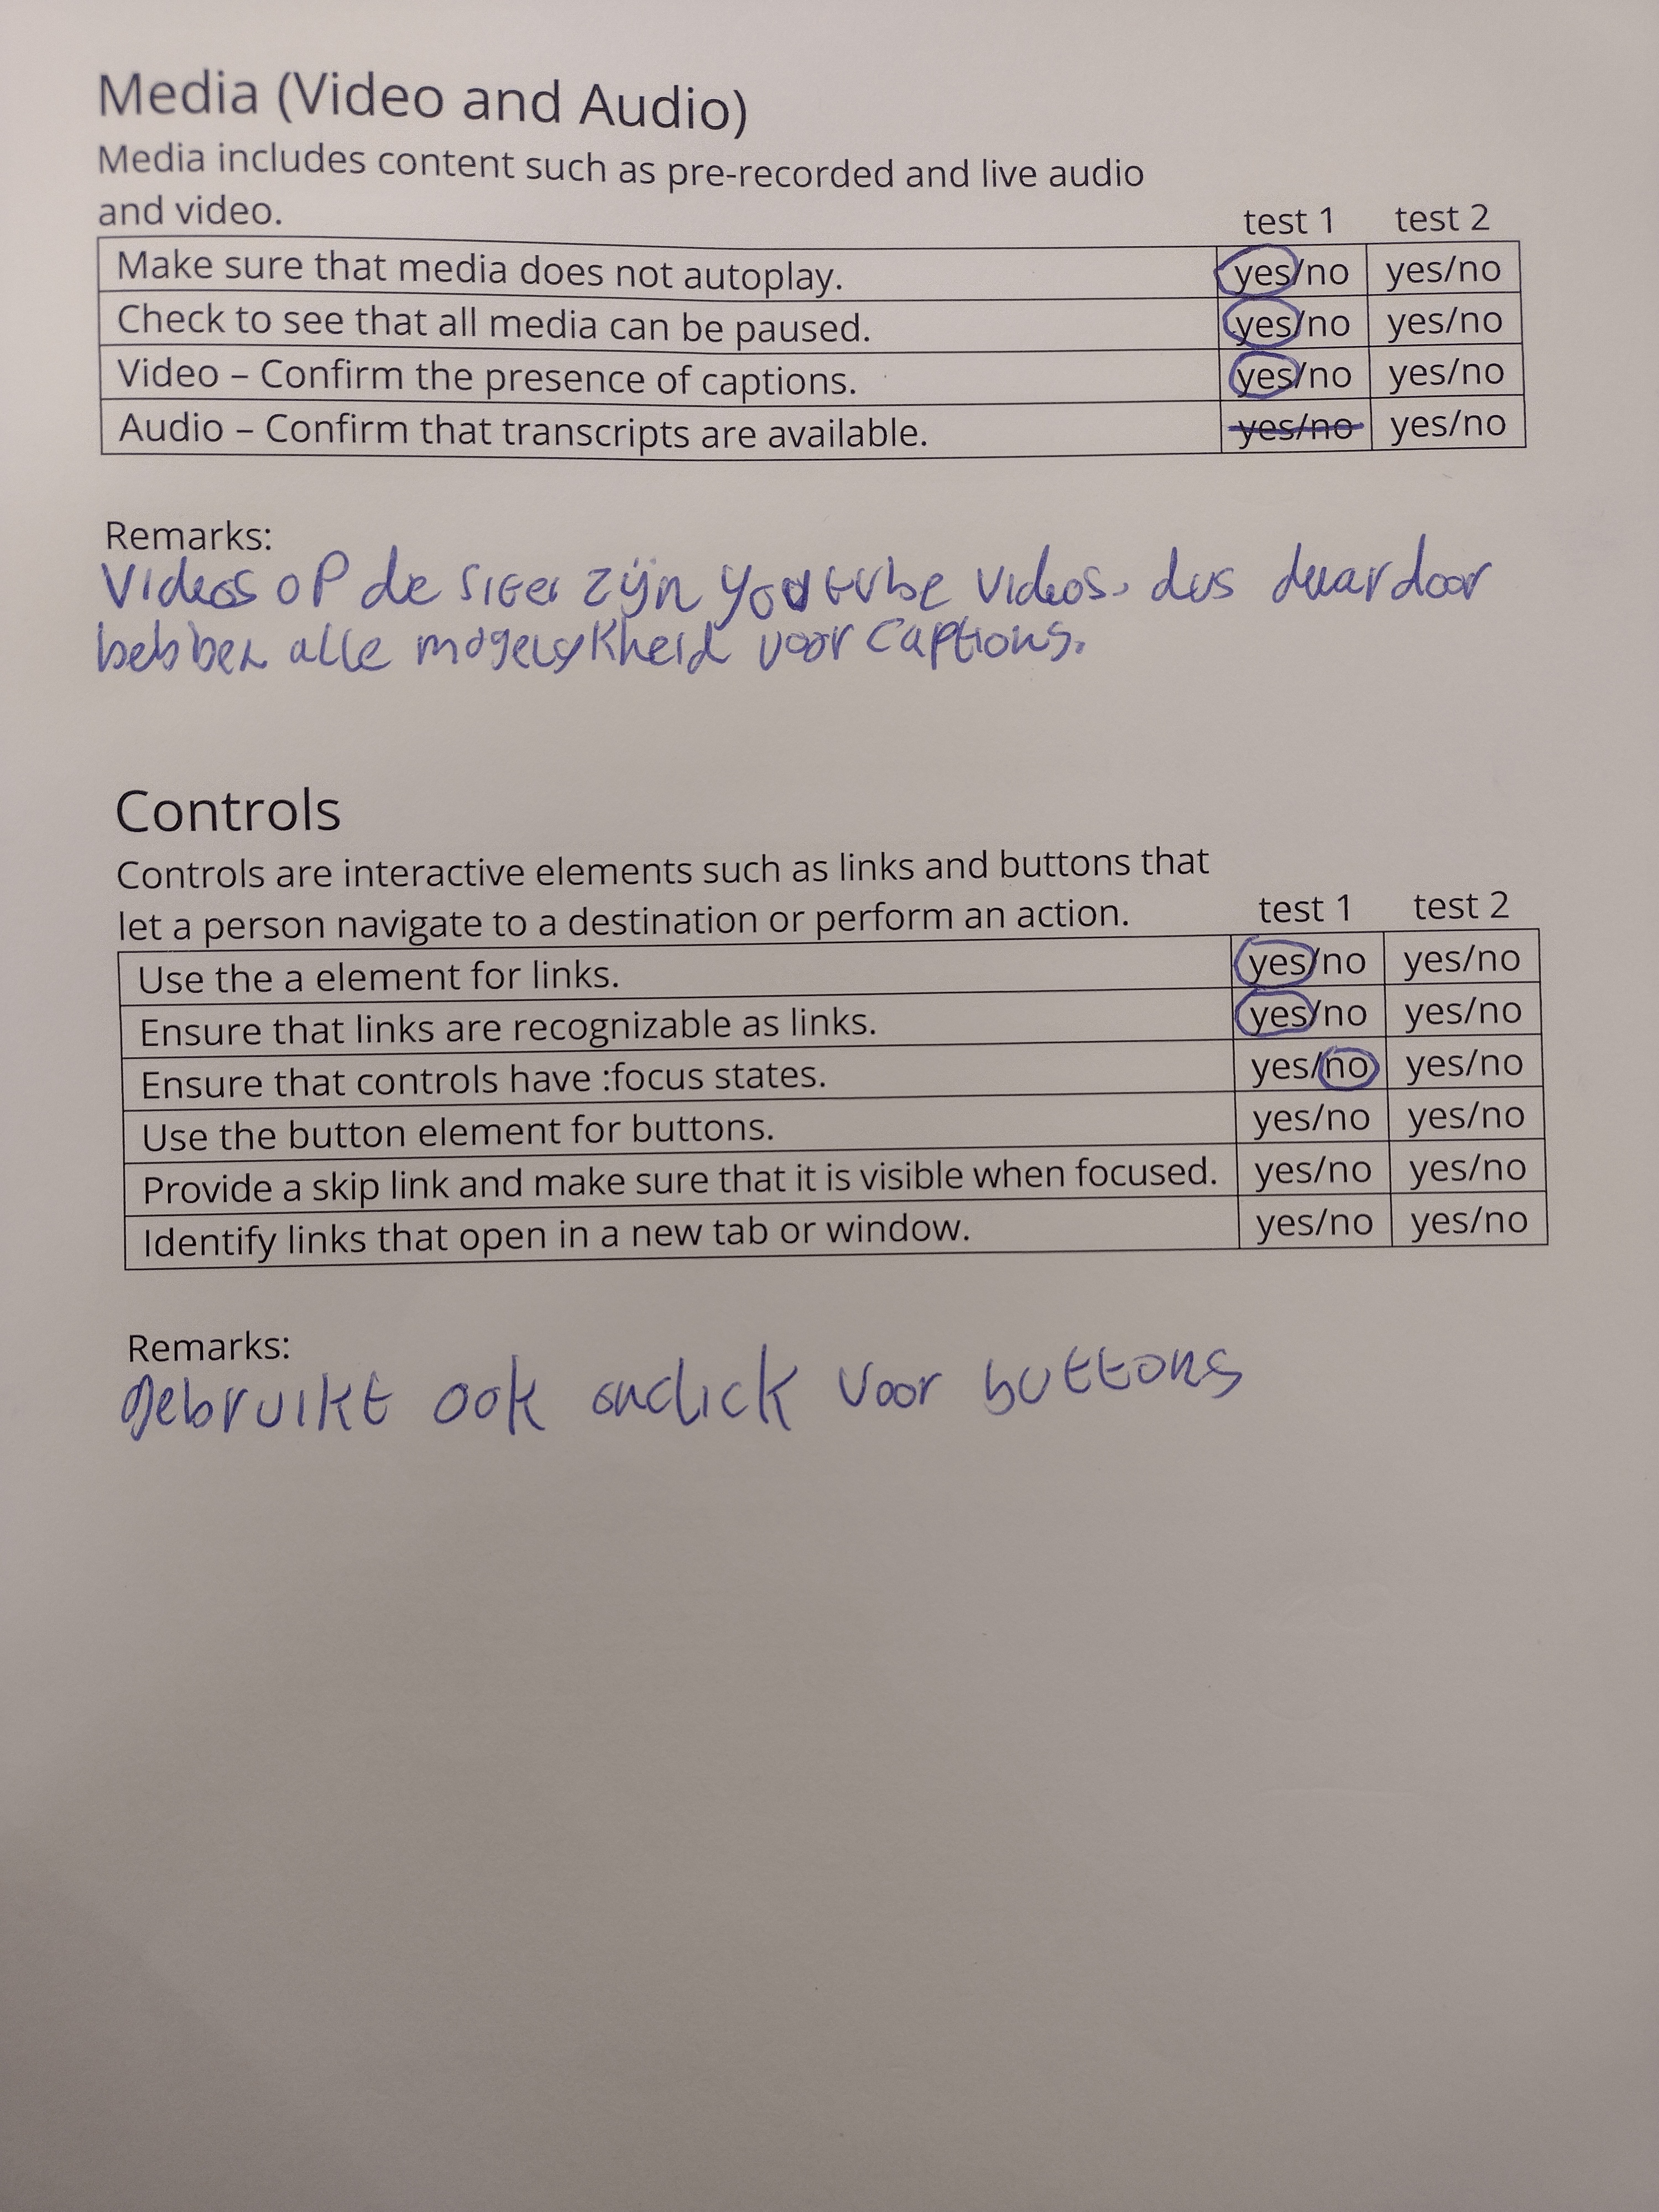 Media (Video and Audio)
Media includes content such as pre-recorded and live audio
and video. test 1 test 2
Make sure that media does not autoplay. yes/no yes/no
Check to see that all media can be paused. yes/no yes/no
Video – Confirm the presence of captions. yes/no yes/no
Audio – Confirm that transcripts are available. yes/no yes/no
Remarks:
Videos op de zijn youtube videos, dus daardoor
hebben alle mogelijkheid voor captions.
Controls
Controls are interactive elements such as links and buttons that
let a person navigate to a destination or perform an action. test 1 test 2
Use the a element for links. yes/no yes/no
Ensure that links are recognizable as links. yes/no yes/no
Ensure that controls have :focus states. yes/no yes/no
Use the button element for buttons. yes/no yes/no
Provide a skip link and make sure that it is visible when focused. yes/no yes/no
Identify links that open in a new tab or window. yes/no yes/no
Remarks:
gebruikt ook onclick voor buttons